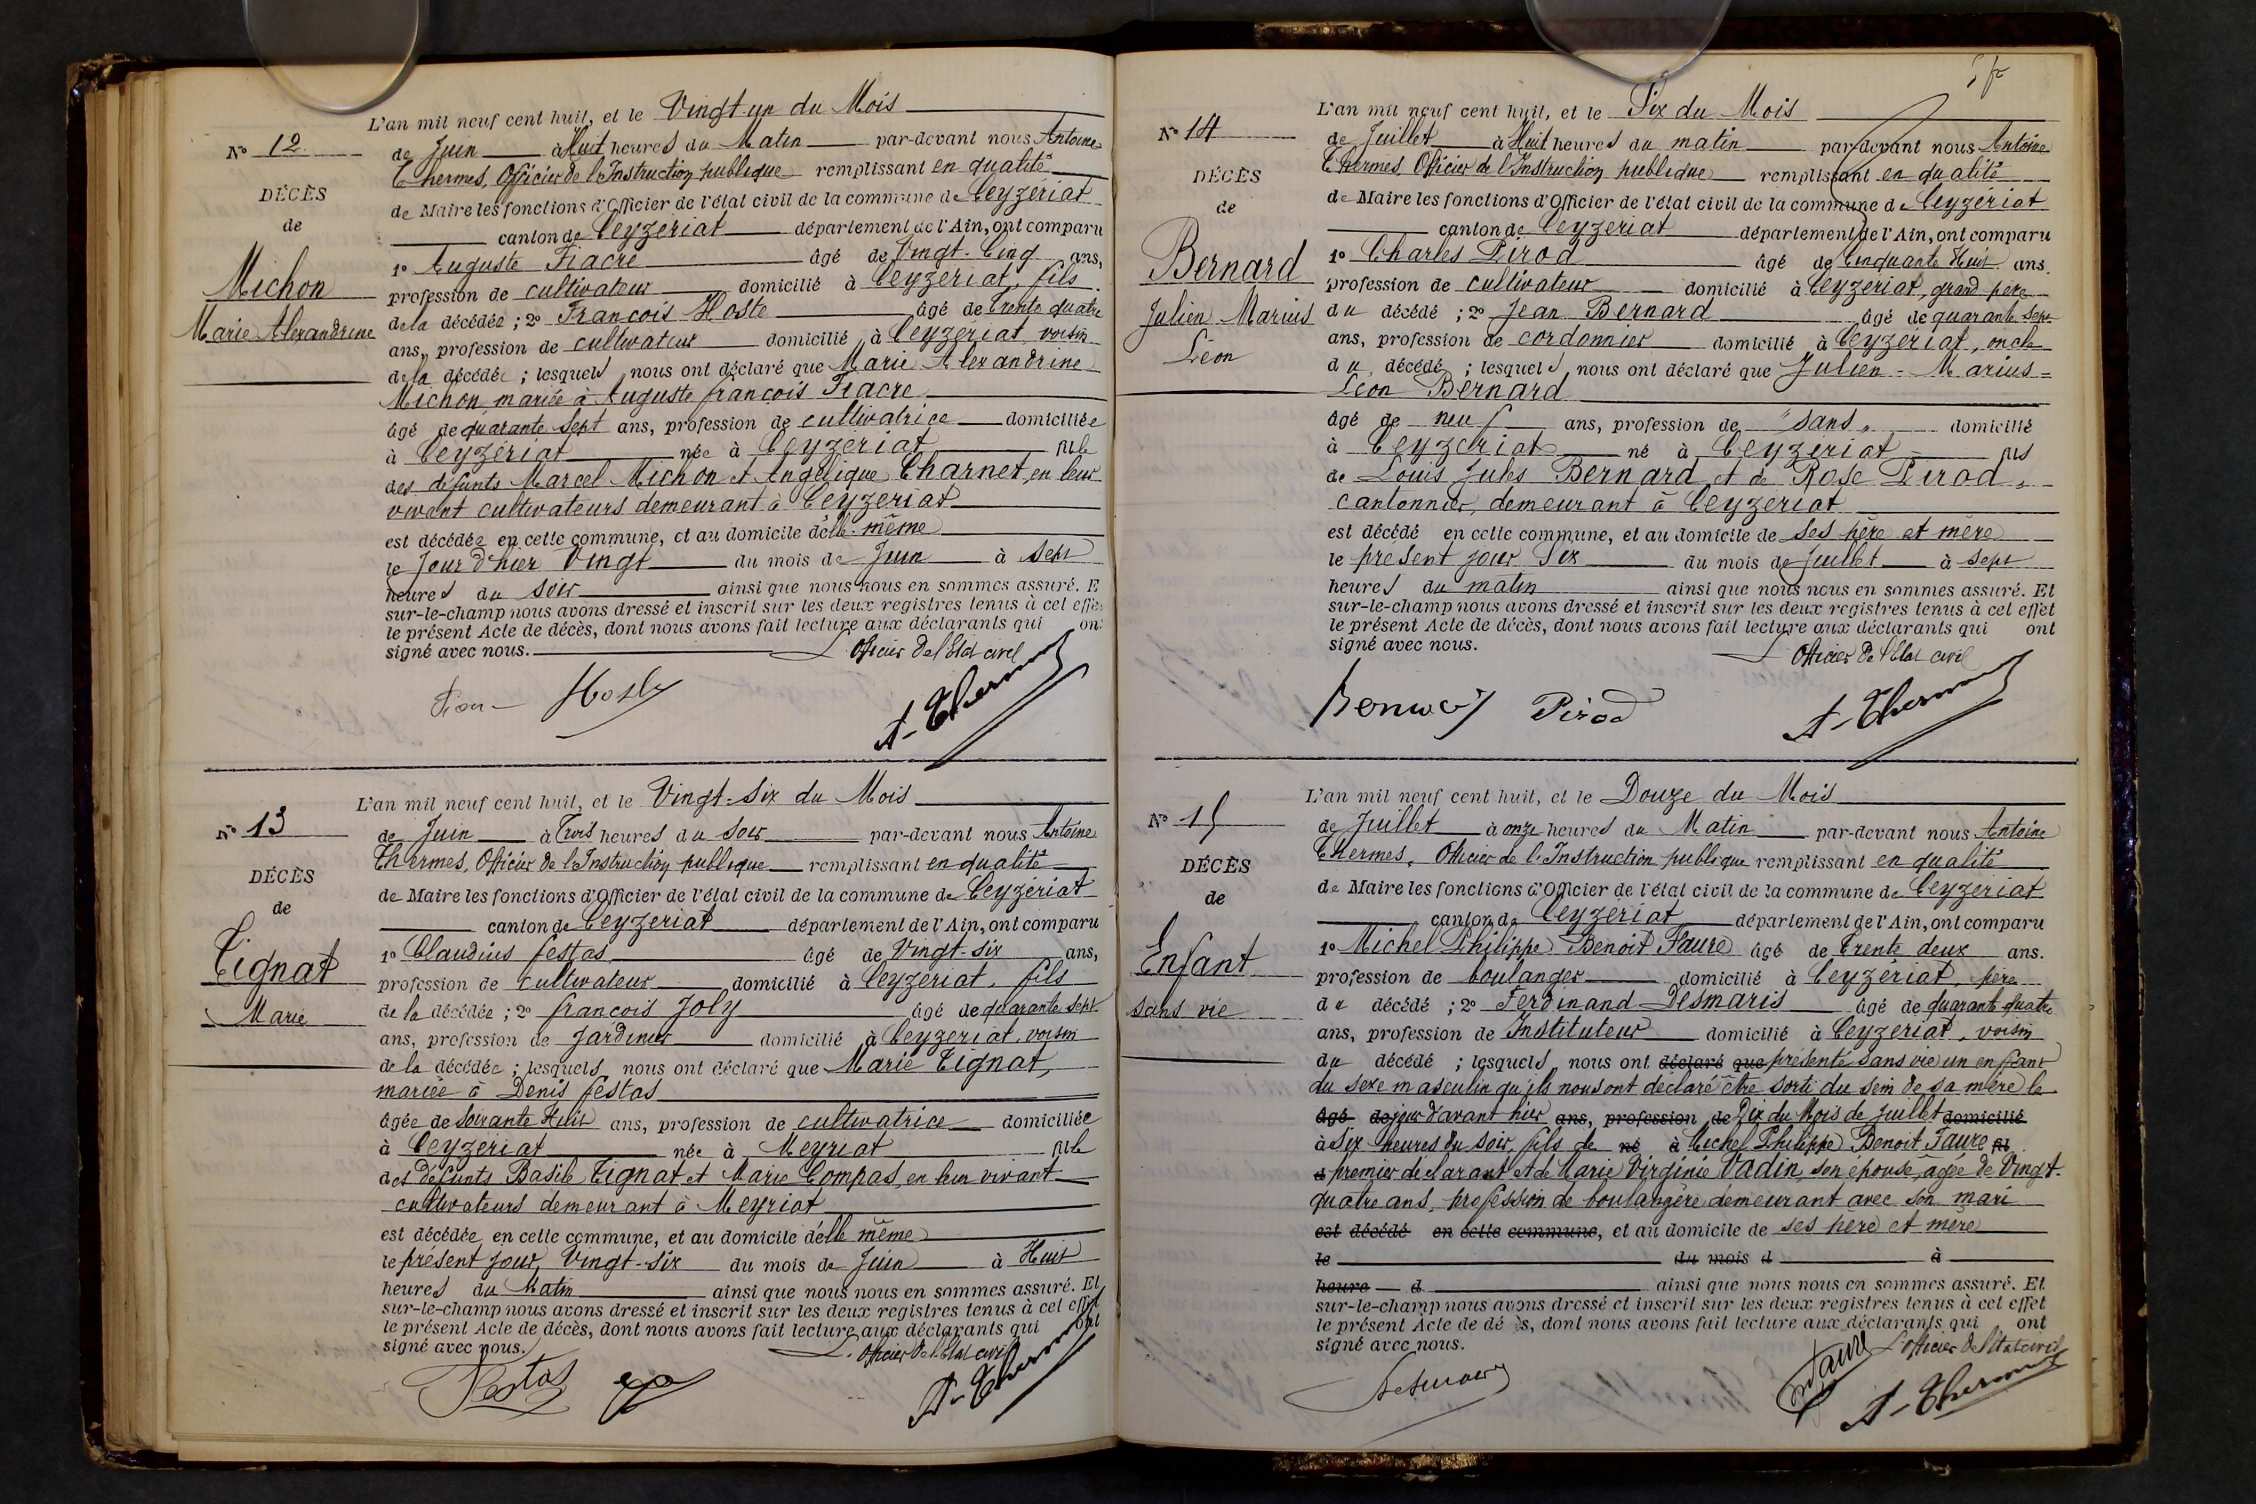 L'an mil neuf cent huit, et le Vingt-un du Mois
Nº 12
de Juin à Huit heures du Matin par-devant nous Antoine
Thermes, Officier de l'Instruction publique remplissant en qualité
DÉCÈS
de Maire les fonctions d'Officier de l'état civil de la commune de Ceyzériat
de
canton de Ceyzériat département de l'Ain, ont comparu
Michon
1º Auguste Fiacre âgé de Vingt-Cinq ans,
profession de cultivateur domicilié à Ceyzériat, fils
Marie Alexandrine
de la décédée ; 2º François Hoste âgé de trente quatre
ans, profession de cultivateur domicilié à Ceyzériat, voisin
de la décédée ; lesquels nous ont déclaré que Marie Alexandrine
Michon, mariée à Auguste françois Fiacre
âgé de quarante sept ans, profession de cultivatrice domiciliée
à Ceyzériat née à Ceyzériat fille
des défunts Marcel Michon et Angélique Charnet, en leur
vivant cultivateurs demeurant à Ceyzériat
est décédée en cette commune, et au domicile d'elle-même
le Jour d'hier Vingt du mois de Juin à sept
heures du soir ainsi que nous nous en sommes assuré. E
sur-le-champ nous avons dressé et inscrit sur les deux registres tenus à cet effet
le présent Acte de décès, dont nous avons fait lecture aux déclarants qui ont
signé avec nous. L'Officier de l'Etat civil
Hoste
A. Thermes
L'an mil neuf cent huit, et le Vingt-Six du Mois
Nº 13
de Juin à Trois heures du soir par-devant nous Antoine
Thermes, Officier de l'Instruction publique remplissant en qualité
DÉCÈS
de Maire les fonctions d'Officier de l'état civil de la commune de Ceyzériat
de
canton de Ceyzériat département de l'Ain, ont comparu
Tignat
1º Claudius festas âgé de Vingt-six ans,
profession de cultivateur domicilié à Ceyzériat, fils
Marie
de la décédée ; 2º françois Joly âgé de quarante sept
ans, profession de Jardinier domicilié à Ceyzériat, voisin
de la décédée ; lesquels nous ont déclaré que Marie Tignat,
mariée à Denis festas
âgée de Soixante Huit ans, profession de cultivatrice domiciliée
à Ceyzériat née à Meyriat fille
des défunts Basile Tignat et Marie Compas, en leur vivant
cultivateurs demeurant à Meyriat
est décédée en cette commune, et au domicile d'elle même
le présent jour, Vingt-six du mois de Juin à Huit
heures du Matin ainsi que nous nous en sommes assuré. Et
sur-le-champ nous avons dressé et inscrit sur les deux registres tenus à cet effet
le présent Acte de décès, dont nous avons fait lecture aux déclarants qui ont
signé avec nous. L'Officier de l'Etat civil
Festas
A. Thermes
L'an mil neuf cent huit, et le Six du Mois
Nº 14
de Juillet à Huit heures du matin par-devant nous Antoine
Thermes, Officier de l'Instruction publique remplissant en qualité
DÉCÈS
de Maire les fonctions d'Officier de l'état civil de la commune de Ceyzériat
de
canton de Ceyzériat département de l'Ain, ont comparu
Bernard
1º Charles Pirod âgé de Cinquante Huit ans.
profession de cultivateur domicilié à Ceyzériat, grand père
Julien Marius
du décédé ; 2º Jean Bernard âgé de quarante sept
Léon
ans, profession de cordonnier domicilié à Ceyzériat, oncle
du décédé ; lesquels nous ont déclaré que Julien-Marius-
Léon Bernard
âgé de neuf ans, profession de "sans" domicilié
à Ceyzériat né à Ceyzériat fils
de Louis Jules Bernard et de Rose Pirod,
cantonnier, demeurant à Ceyzériat
est décédé en cette commune, et au domicile de ses père et mère
le présent jour Six du mois de Juillet à sept
heures du matin ainsi que nous nous en sommes assuré. Et
sur-le-champ nous avons dressé et inscrit sur les deux registres tenus à cet effet
le présent Acte de décès, dont nous avons fait lecture aux déclarants qui ont
signé avec nous. L'Officier de l'Etat civil
Pirod
A. Thermes
L'an mil neuf cent huit, et le Douze du Mois
Nº 15
de Juillet à onze heures du Matin par-devant nous Antoine
Thermes, Officier de l'Instruction publique remplissant en qualité
DÉCÈS
de Maire les fonctions d'Officier de l'état civil de la commune de Ceyzériat
de
canton de Ceyzériat département de l'Ain, ont comparu
Enfant
1º Michel Philippe Benoit Faure âgé de trente deux ans.
profession de boulanger domicilié à Ceyzériat, père
sans vie
du décédé ; 2º Ferdinand Desmaris âgé de quarante quatre
ans, profession de Instituteur domicilié à Ceyzériat, voisin
du décédé ; lesquels nous ont déclaré que présenté sans vie un enfant
du sexe masculin qu'ils nous ont déclaré être sorti du sein de sa mère le
âgé de jour d'avant hier ans, profession de Dix du Mois de Juillet domicilié
à Six heures du soir, fils de né à Michel Philippe Benoit Faure fil
premier déclarant et de Marie Virginie Vadin, son épouse, âgée de Vingt-
quatre ans, profession de boulangère demeurant avec son mari
est décédé en cette commune, et au domicile de ses père et mère
le du mois d à
heure d ainsi que nous nous en sommes assuré. Et
sur-le-champ nous avons dressé et inscrit sur les deux registres tenus à cet effet
le présent Acte de décès, dont nous avons fait lecture aux déclarants qui ont
signé avec nous. L'officier de l'état civil
Faure
A. Thermes